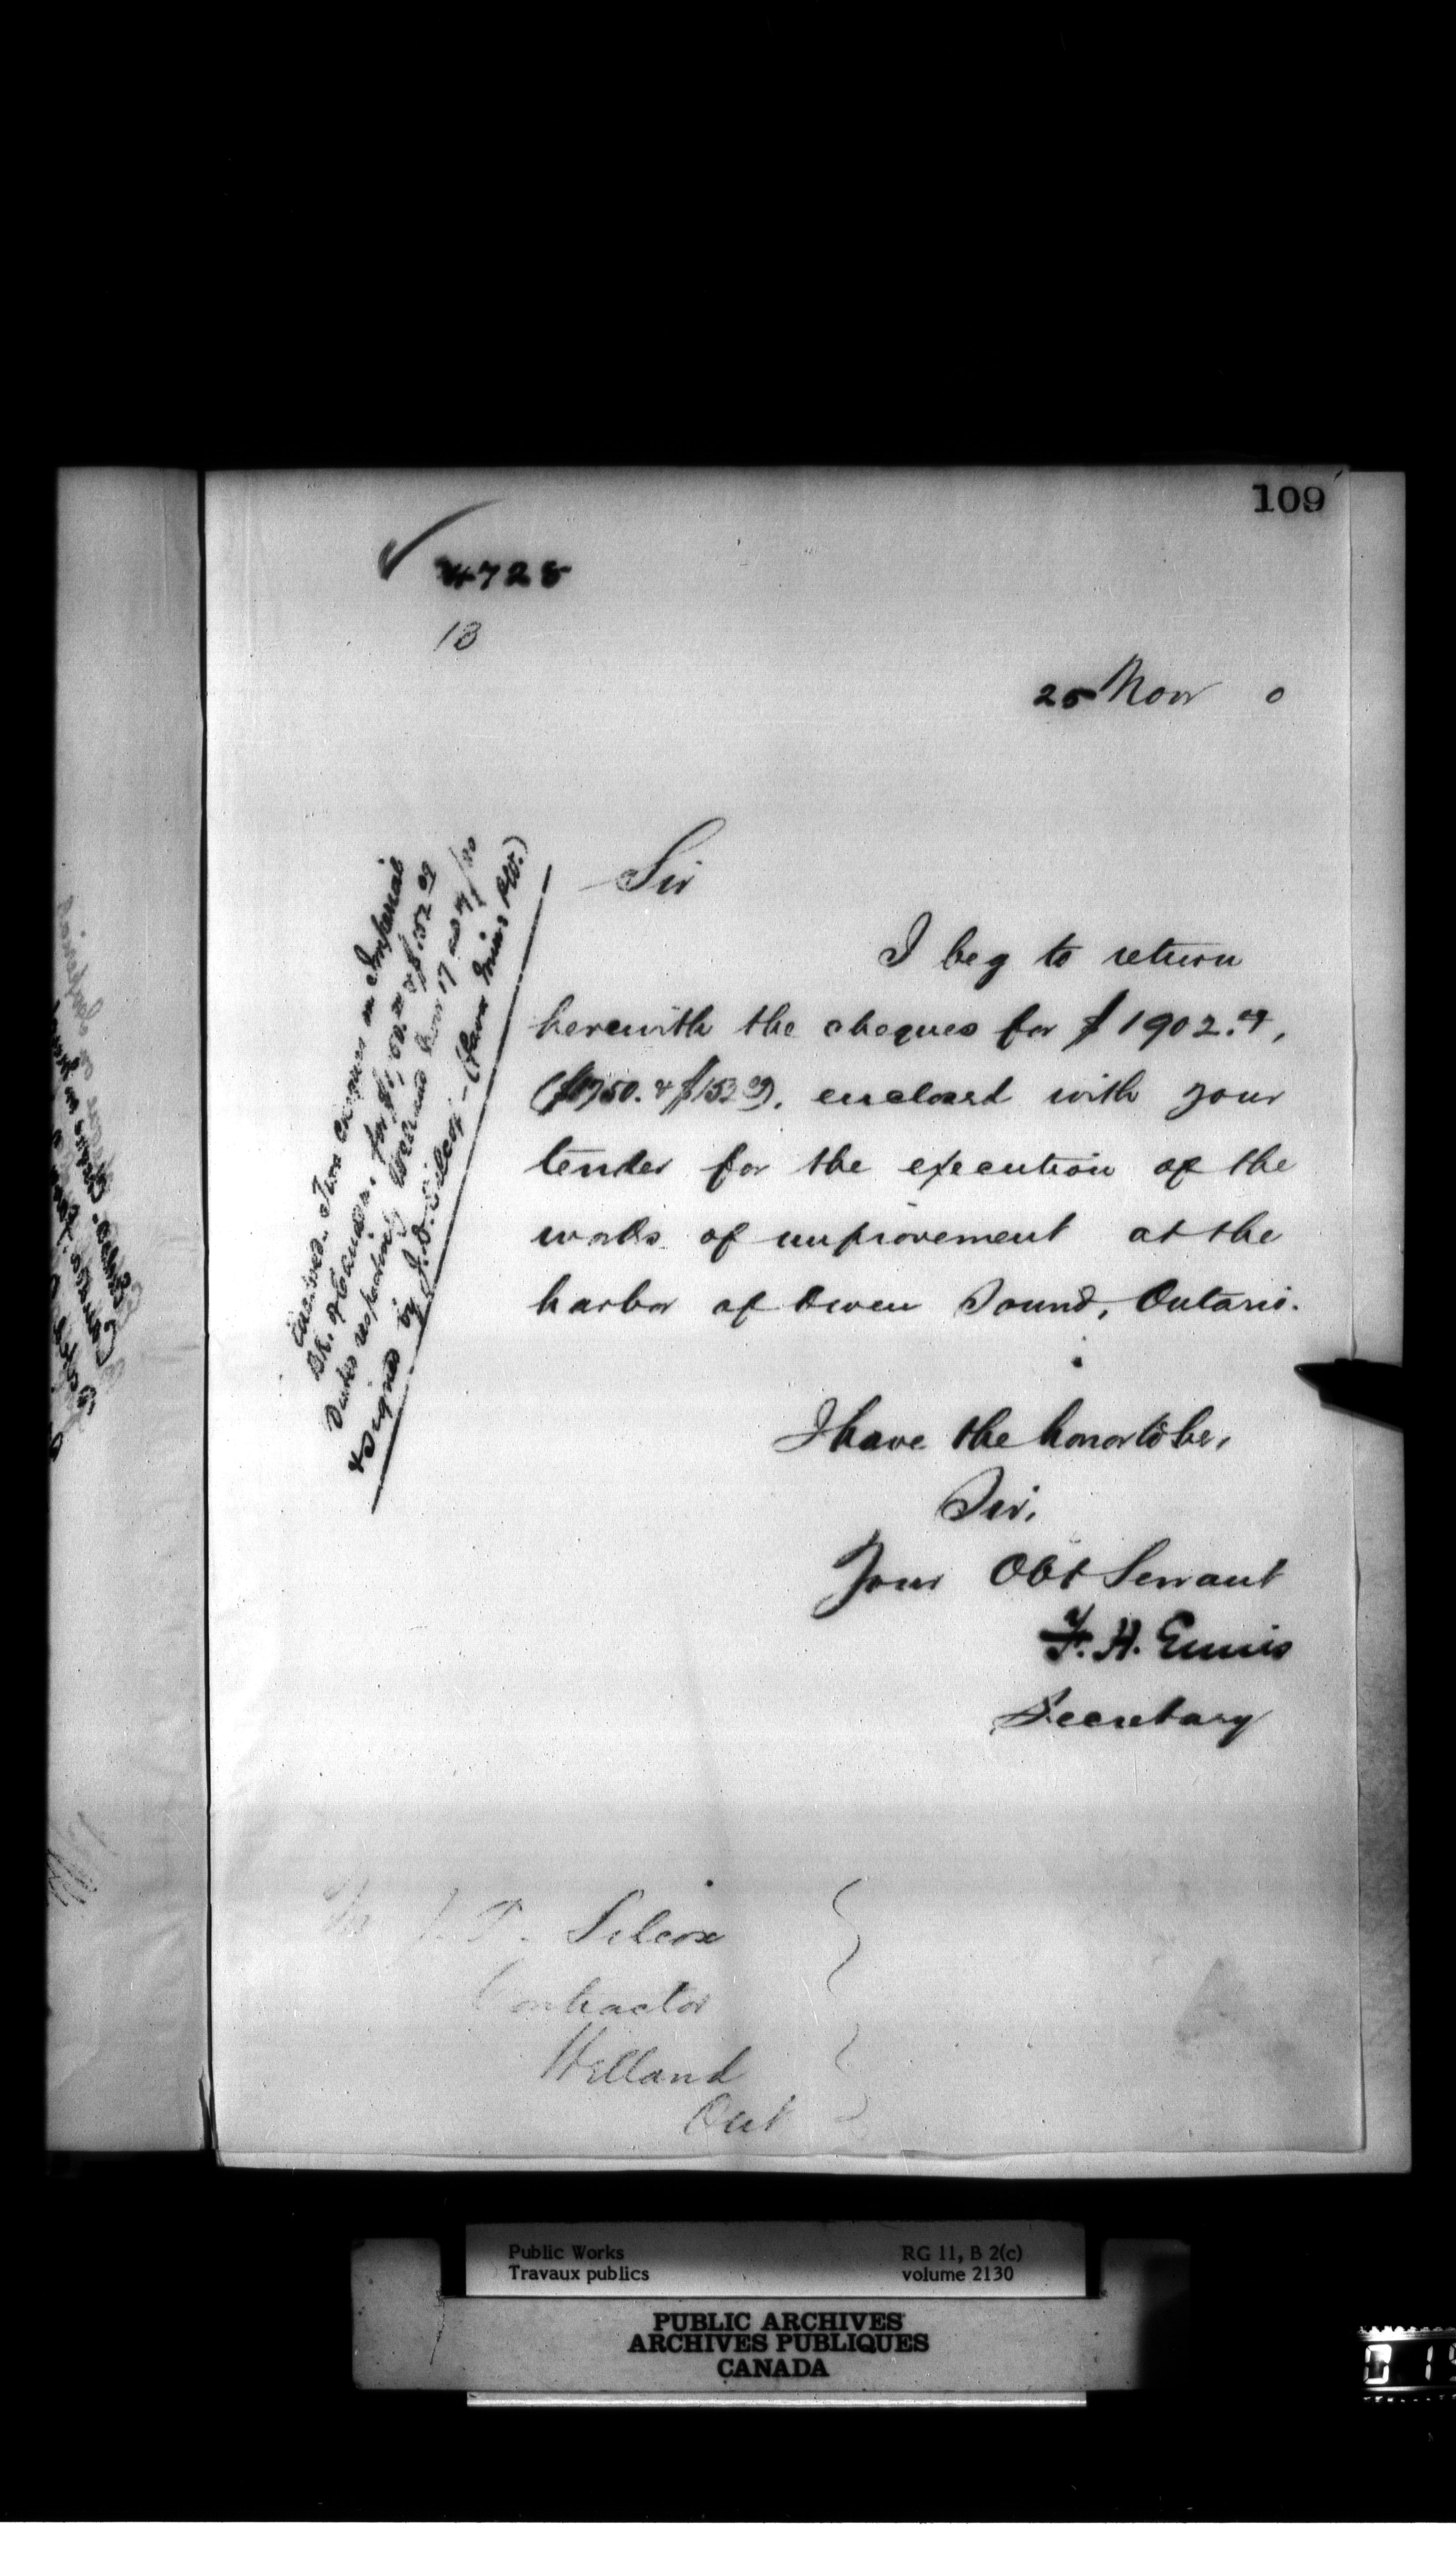 109
4728
13
25 Nov 0
Sir
I beg to return
herewith the cheques for $1902.09,
($1750. & $152.09), enclosed with your
tender for the execution of the
works of improvement at the
harbor of Owen Sound, Ontario.
Enclosed. Two Cheques on Imperial
Bk. of Canada, for $1750.00 & $152.09
Dates respectively Welland Nov 17 and 19/80
& signed by J.D. Silcox — (favor Minr P.W.)
I have the honor to be,
Sir,
Your Obt Servant
F. H. Ennis
Secretary
J. D. Silcox
Contractor
Welland
Ont
Public Works
Travaux publics
RG 11, B 2(c)
volume 2130
PUBLIC ARCHIVES
ARCHIVES PUBLIQUES
CANADA